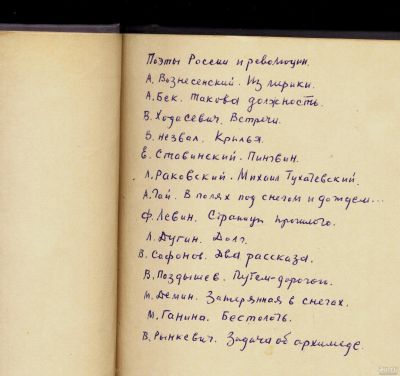 Поэты России и революции.
А. Вознесенский. Из лирики.
А. Бек. Такова должность.
В. Ходасевич. Встречи.
В. Незвал. Крылья.
Е. Ставинский. Пингвин.
Л. Раковский. Михаил Тухачевский.
А. Гай. В полях под снегом и дождем...
Ф. Левин. Страницы прошлого.
Л. Дугин. Долг.
В. Сафонов. Два рассказа.
В. Поздышев. Путем-дорогой.
М. Демин. Затерянная в снегах.
М. Ганина. Бестолочь.
В. Рынкевич. Задача об архимеде.